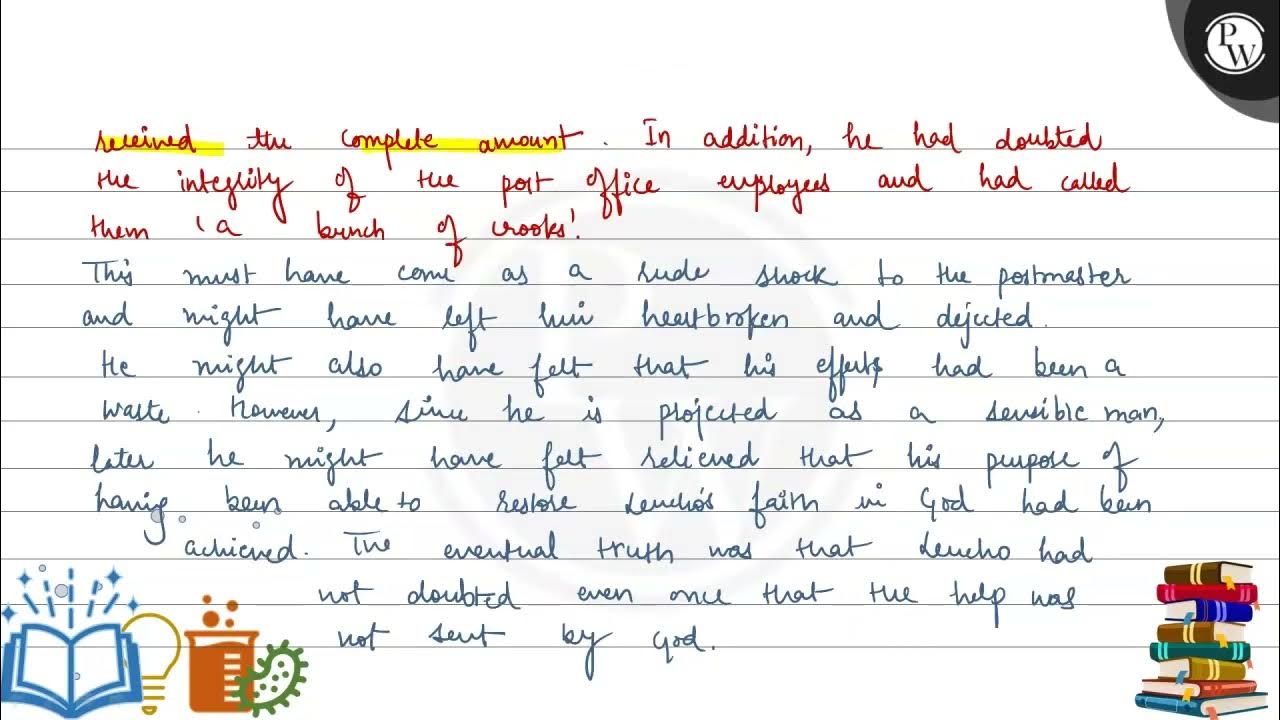 PW
received the complete amount. In addition, he had doubted
the integrity of the post office employees and had called
them 'a bunch of crooks'.
This must have come as a rude shock to the postmaster
and might have left him heartbroken and dejected.
He might also have felt that his efforts had been a
waste. However, since he is projected as a sensible man,
later he might have felt relieved that his purpose of
having been able to restore Lencho's faith in God had been
achieved. The eventual truth was that Lencho had
not doubted even once that the help was
not sent by God.